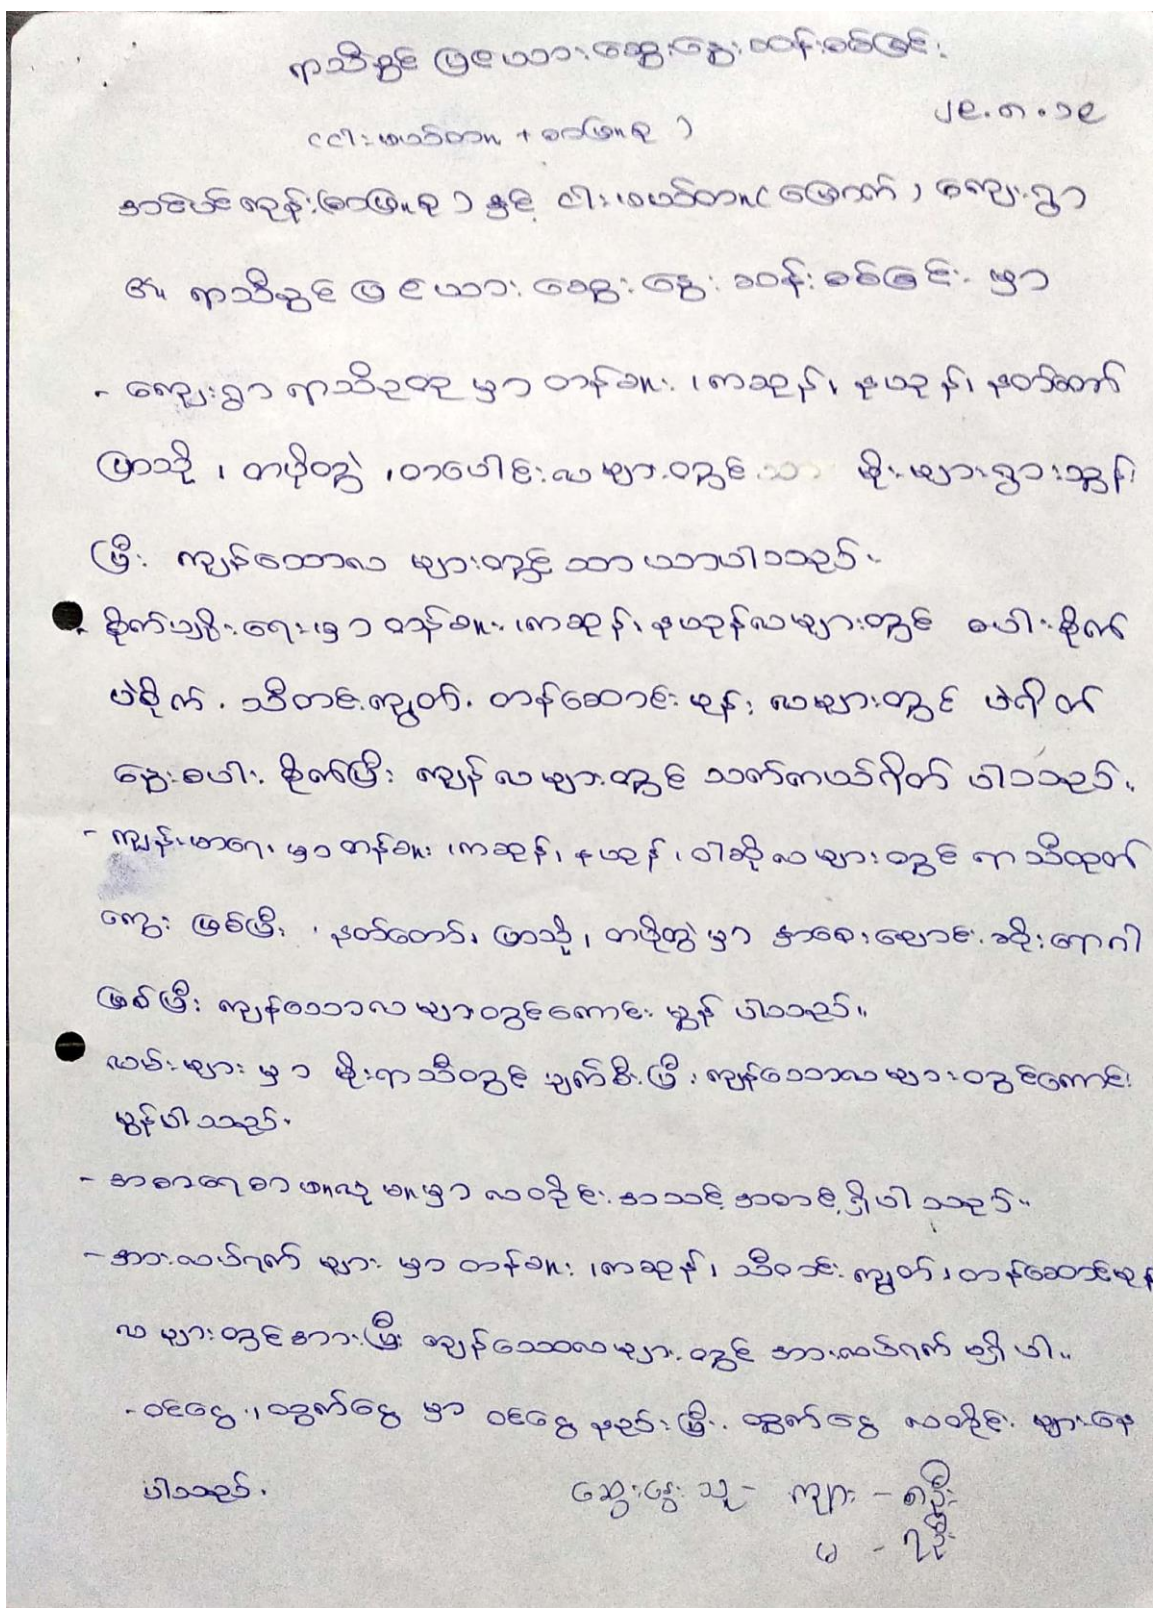 ရာသီခွင် ပြဇယား ဆွေးနွေး ဆန်းစစ်ခြင်း
၂၉.၈.၁၉
(ငါးဖယ်တာ +
နှင့် ငါးဖယ်တာ ( မြောက် ) ကျေးရွာ
၏ ရာသီခွင် ပြဇယား ဆွေးနွေး ဆန်းစစ်ခြင်း မှာ
- ကျေးရွာ ရာသီဥတု မှာ တန်ခူး ၊ ကဆုန်၊ နယုန်၊ နတ်တော်
ပြာသို ၊ တပို့တွဲ ၊ တပေါင်းလ များတွင် မိုးများရွာသွန်း
ပြီး ကျန်သောလ များတွင် သာယာပါသည်။
- စိုက်ပျိုးရေးမှာ တန်ခူး ၊ ကဆုန်၊ နယုန်လများတွင် စပါးစိုက်
ပဲစိုက် ၊ သီတင်းကျွတ်၊ တန်ဆောင်းမုန်း လများတွင် ပဲရိတ်
နွေးစပါး စိုက်ပြီး ကျန်လများတွင် သက်ကယ်ရိတ် ပါသည်။
- ကျန်းမာရေး မှာ တန်ခူး ၊ ကဆုန်၊ နယုန် ၊ ဝါဆိုလများတွင် ရာသီတုတ်
ကွေး ဖြစ်ပြီး ၊ နတ်တော်၊ ပြာသို၊ တပို့တွဲမှာ အအေးချောင်းဆိုးရောဂါ
ဖြစ်ပြီး ကျန်သောလများတွင်ကောင်း မွန် ပါသည်။
လမ်းများ မှာ မိုးရာသီတွင် ပျက်စီးပြီး ကျန်သောလများတွင်ကောင်း
မွန်ပါသည်။
- အစာရေစာ မှာ လတိုင်း အသင့် အတင့်ရှိပါသည်။
- အားလပ်ရက် များ မှာ တန်ခူး ၊ ကဆုန်၊ သီတင်းကျွတ်၊ တန်ဆောင်မုန်း
လ များတွင်အားပြီး ကျန်သောလများတွင် အားလပ်ရက် မရှိပါ။
- ဝင်ငွေ ၊ ထွက်ငွေ မှာ ဝင်ငွေ နည်းပြီး ထွက်ငွေ လတိုင်း များနေ
ပါသည်။
ဆွေးနွေးသူ - ကျား - ၈ဦး
မ - ၇ဦး